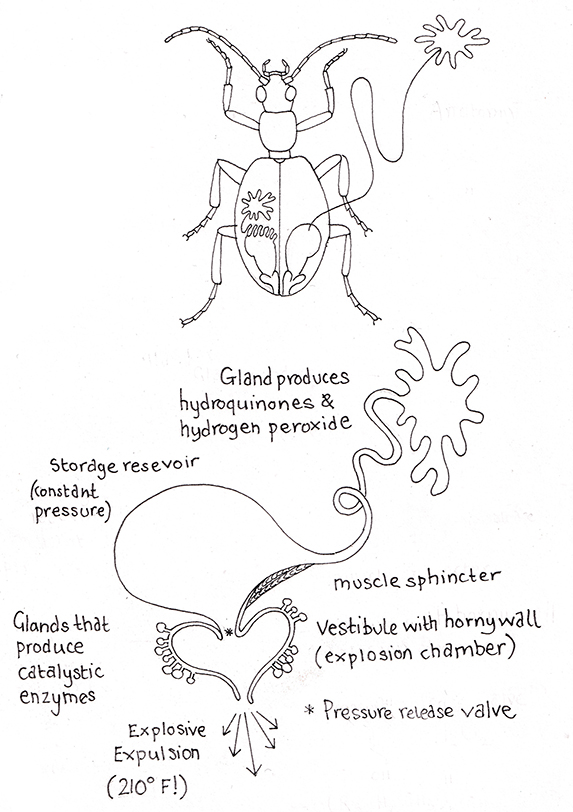 Gland produces
hydroquinones &
hydrogen peroxide
Storage resevoir
(constant
pressure)
muscle sphincter
Glands that
produce
catalystic
enzymes
Vestibule with horny wall
(explosion chamber)
*
* Pressure release valve
Explosive
Expulsion
(210° F!)